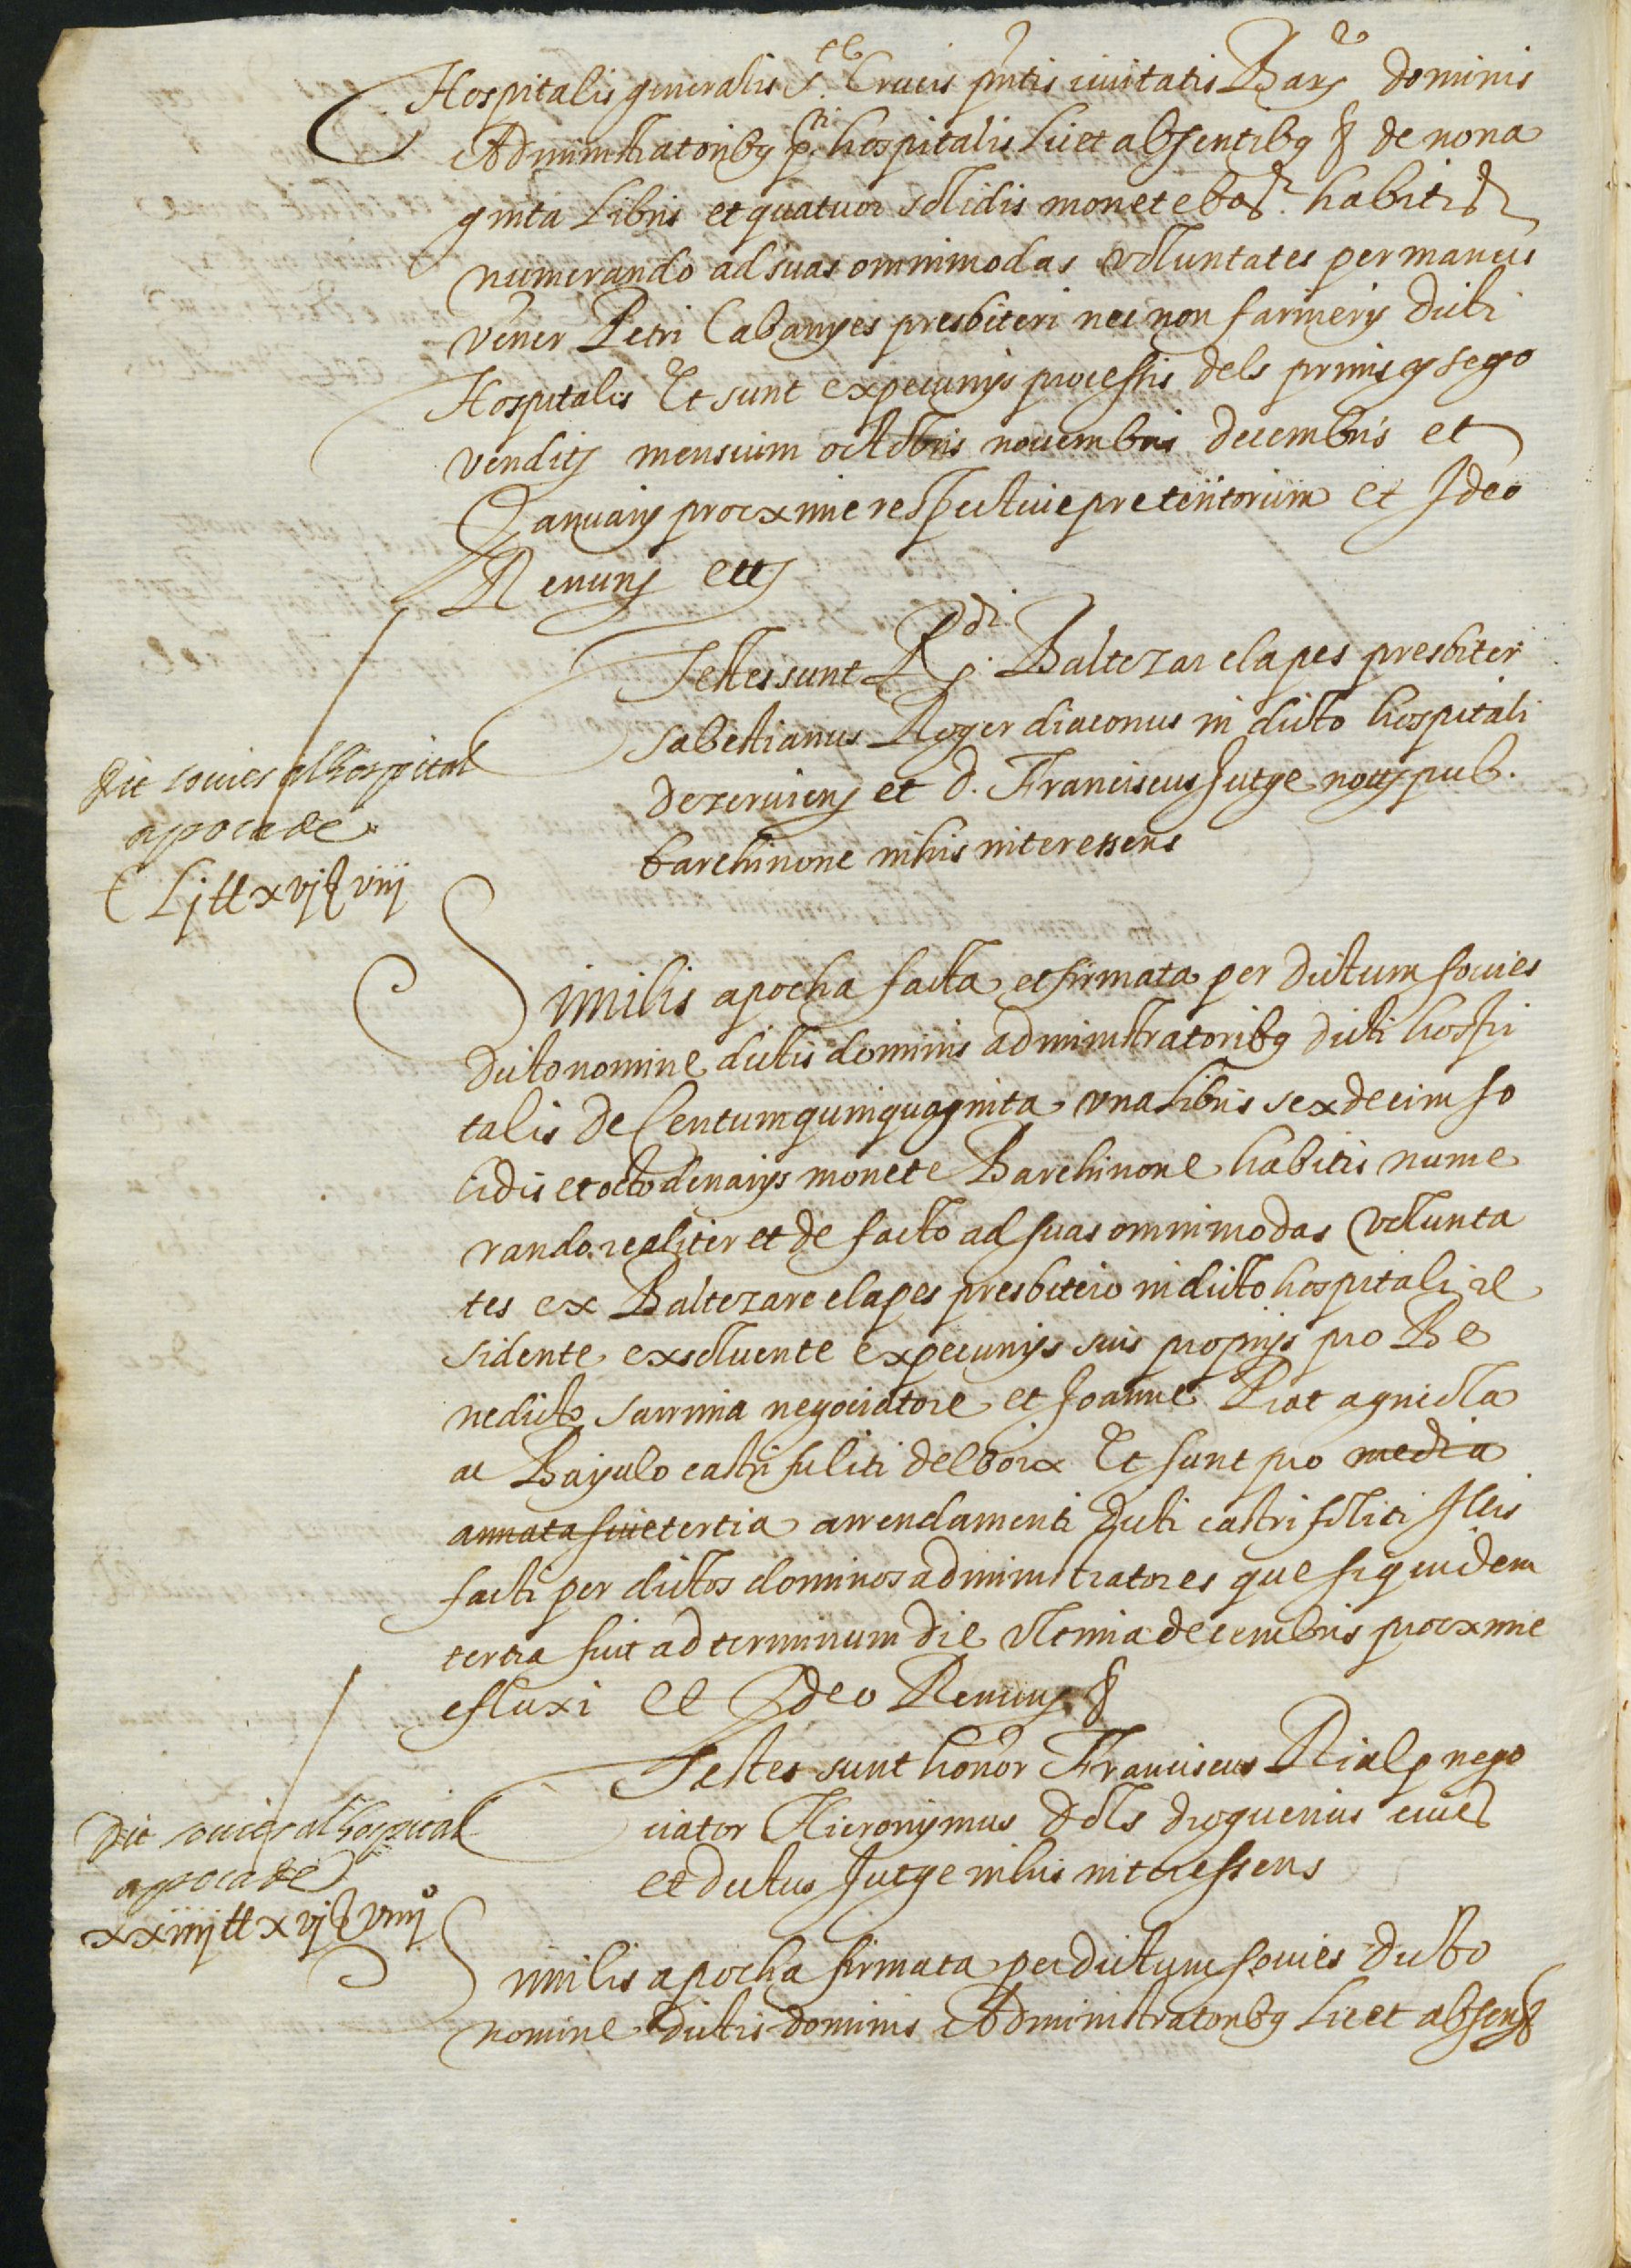 Hospitalis generalis S.te Crucis pntis civitatis Barz dominis
Administratoribq p.ti hospitalis licet absentibq & de nona
ginta libris et quatuor solidis monete bar. habitis
numerando ad suas omnimodas voluntates per manus
vener Petri Cabanyes presbiteri nec non farinerij dicti
Hospitalis Et sunt ex pecunijs processis dels primis y sego
venditz mensium octobris novembris decembris et
Januarij proxime respective preteritorum et Ideo
Renunz ettz
Testes sunt R.di Baltezar clapes presbiter
Sabestianus Roger diaconus in dicto hospitali
dezervienz et d. Franciscus Jutge nottz pub.
barchinone in his interessens
Dit sovies al hospital
apoca de
C Lj tt xvj ß viij
Similis apocha facta et firmata per dictum sovies
dicto nomine dictis dominis administratoribq dicti hospi
talis de Centum quinquaginta una libris sexdecim so
lidis et octo denarijs monete Barchinone habitis nume
rando realiter et de facto ad suas omnimodas volunta
tes ex Baltezare clapes presbitero in dicto hospitali re
sidente exsolvente ex pecunijs suis proprijs pro Be
nedicto sarrina negociatore et Joanne Prat agricola
ac Bajulo castri suliti delboix Et sunt pro media
annata sive tertia arrendamenti dicti castri soliti Illis
facti per dictos dominos administratores que siquidem
tertia fuit ad terminum die ultima decembris proxime
efluxi et Ideo Renunz &
Testes sunt honor Franciscus Rialp nego
ciator Hieronymus Dols droguerius cives
et dictus Jutge in his interessens
Dit sovies al hospital
apoca de
xxiiij tt xvj ß viiij
Similis apocha firmata per dictum sovies dicto
nomine dictis dominis Administratoribq licet absenz